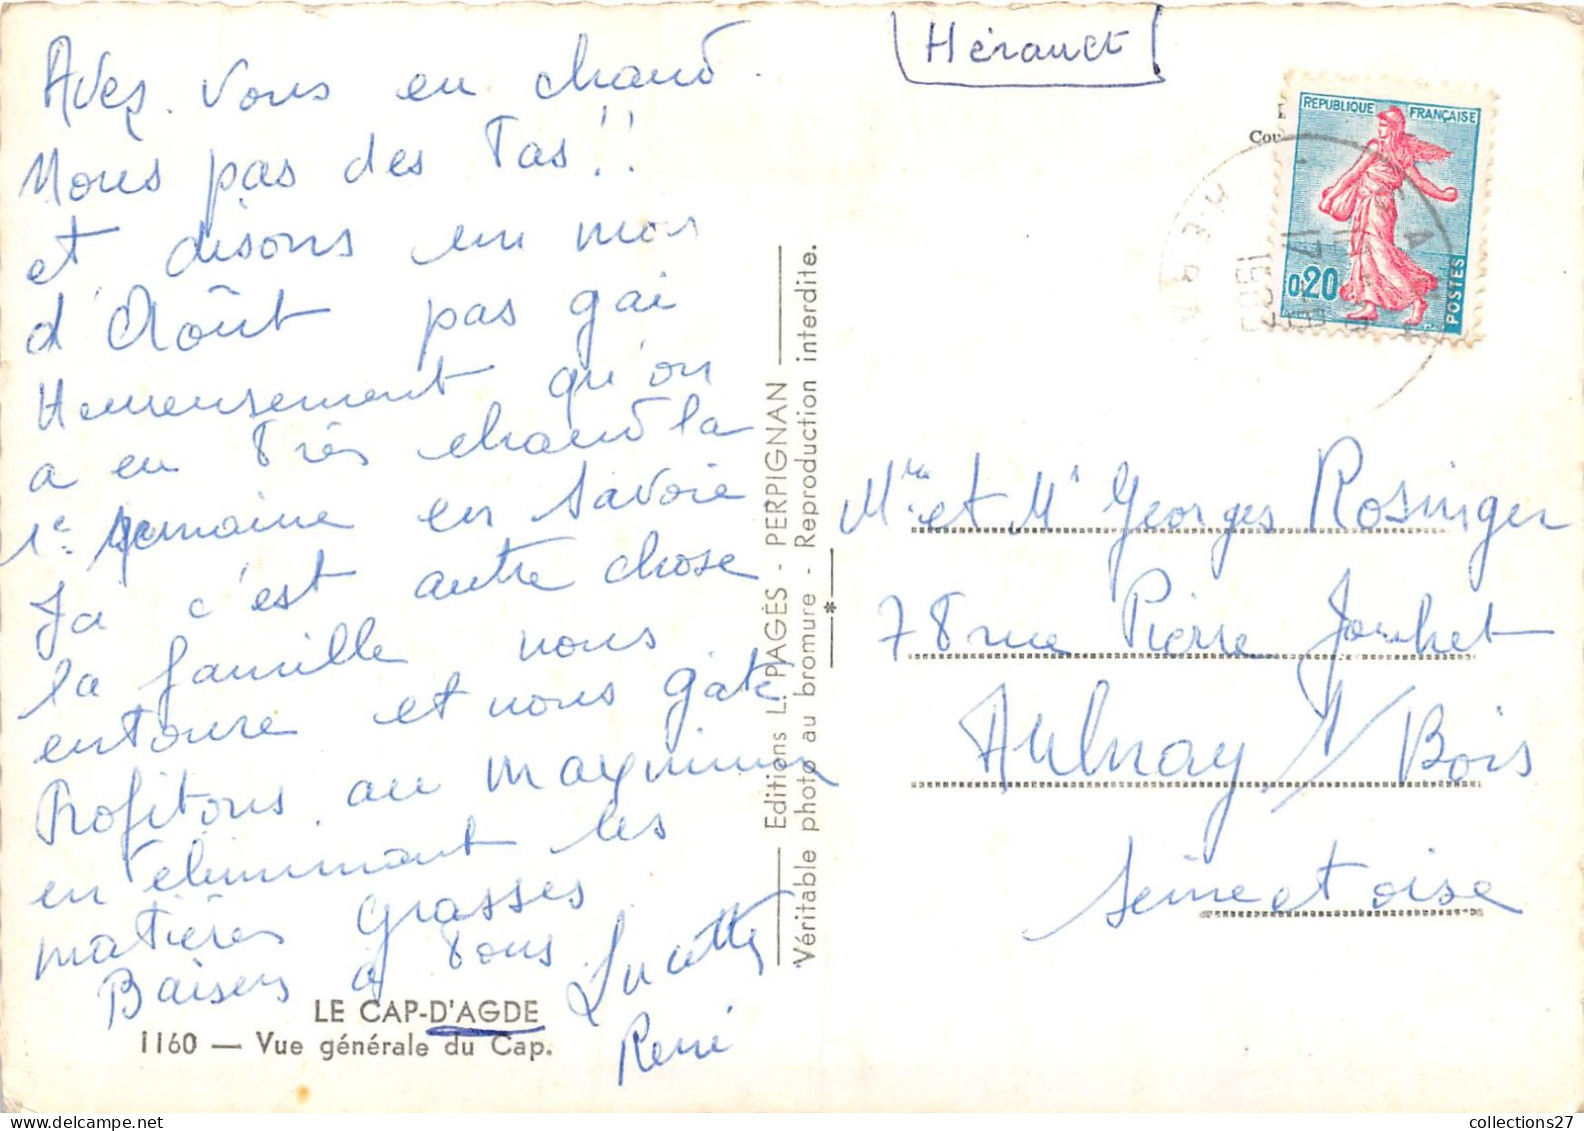 Avez. vous eu chaud.
Nous pas des Tas!!
et disons un mois
d'Août pas gai
Heureusement qu'on
a eu Très chaud la
1e semaine en Savoie
Ja c'est autre chose
la famille nous
entoure et nous gâte
Profitons au maximum
en éliminant les
matières grasses
Baisers à Tous Lucette
René
LE CAP-D'AGDE
1160 — Vue générale du Cap.
Editions L. PAGÈS - PERPIGNAN
Véritable photo au bromure - Reproduction interdite.
Hérault
REPUBLIQUE FRANÇAISE
0,20
POSTES
Cor
Mme et Mr Georges Rosinger
78 rue Pierre Jouhet
Aulnay s/ Bois
Seine et oise
collections27